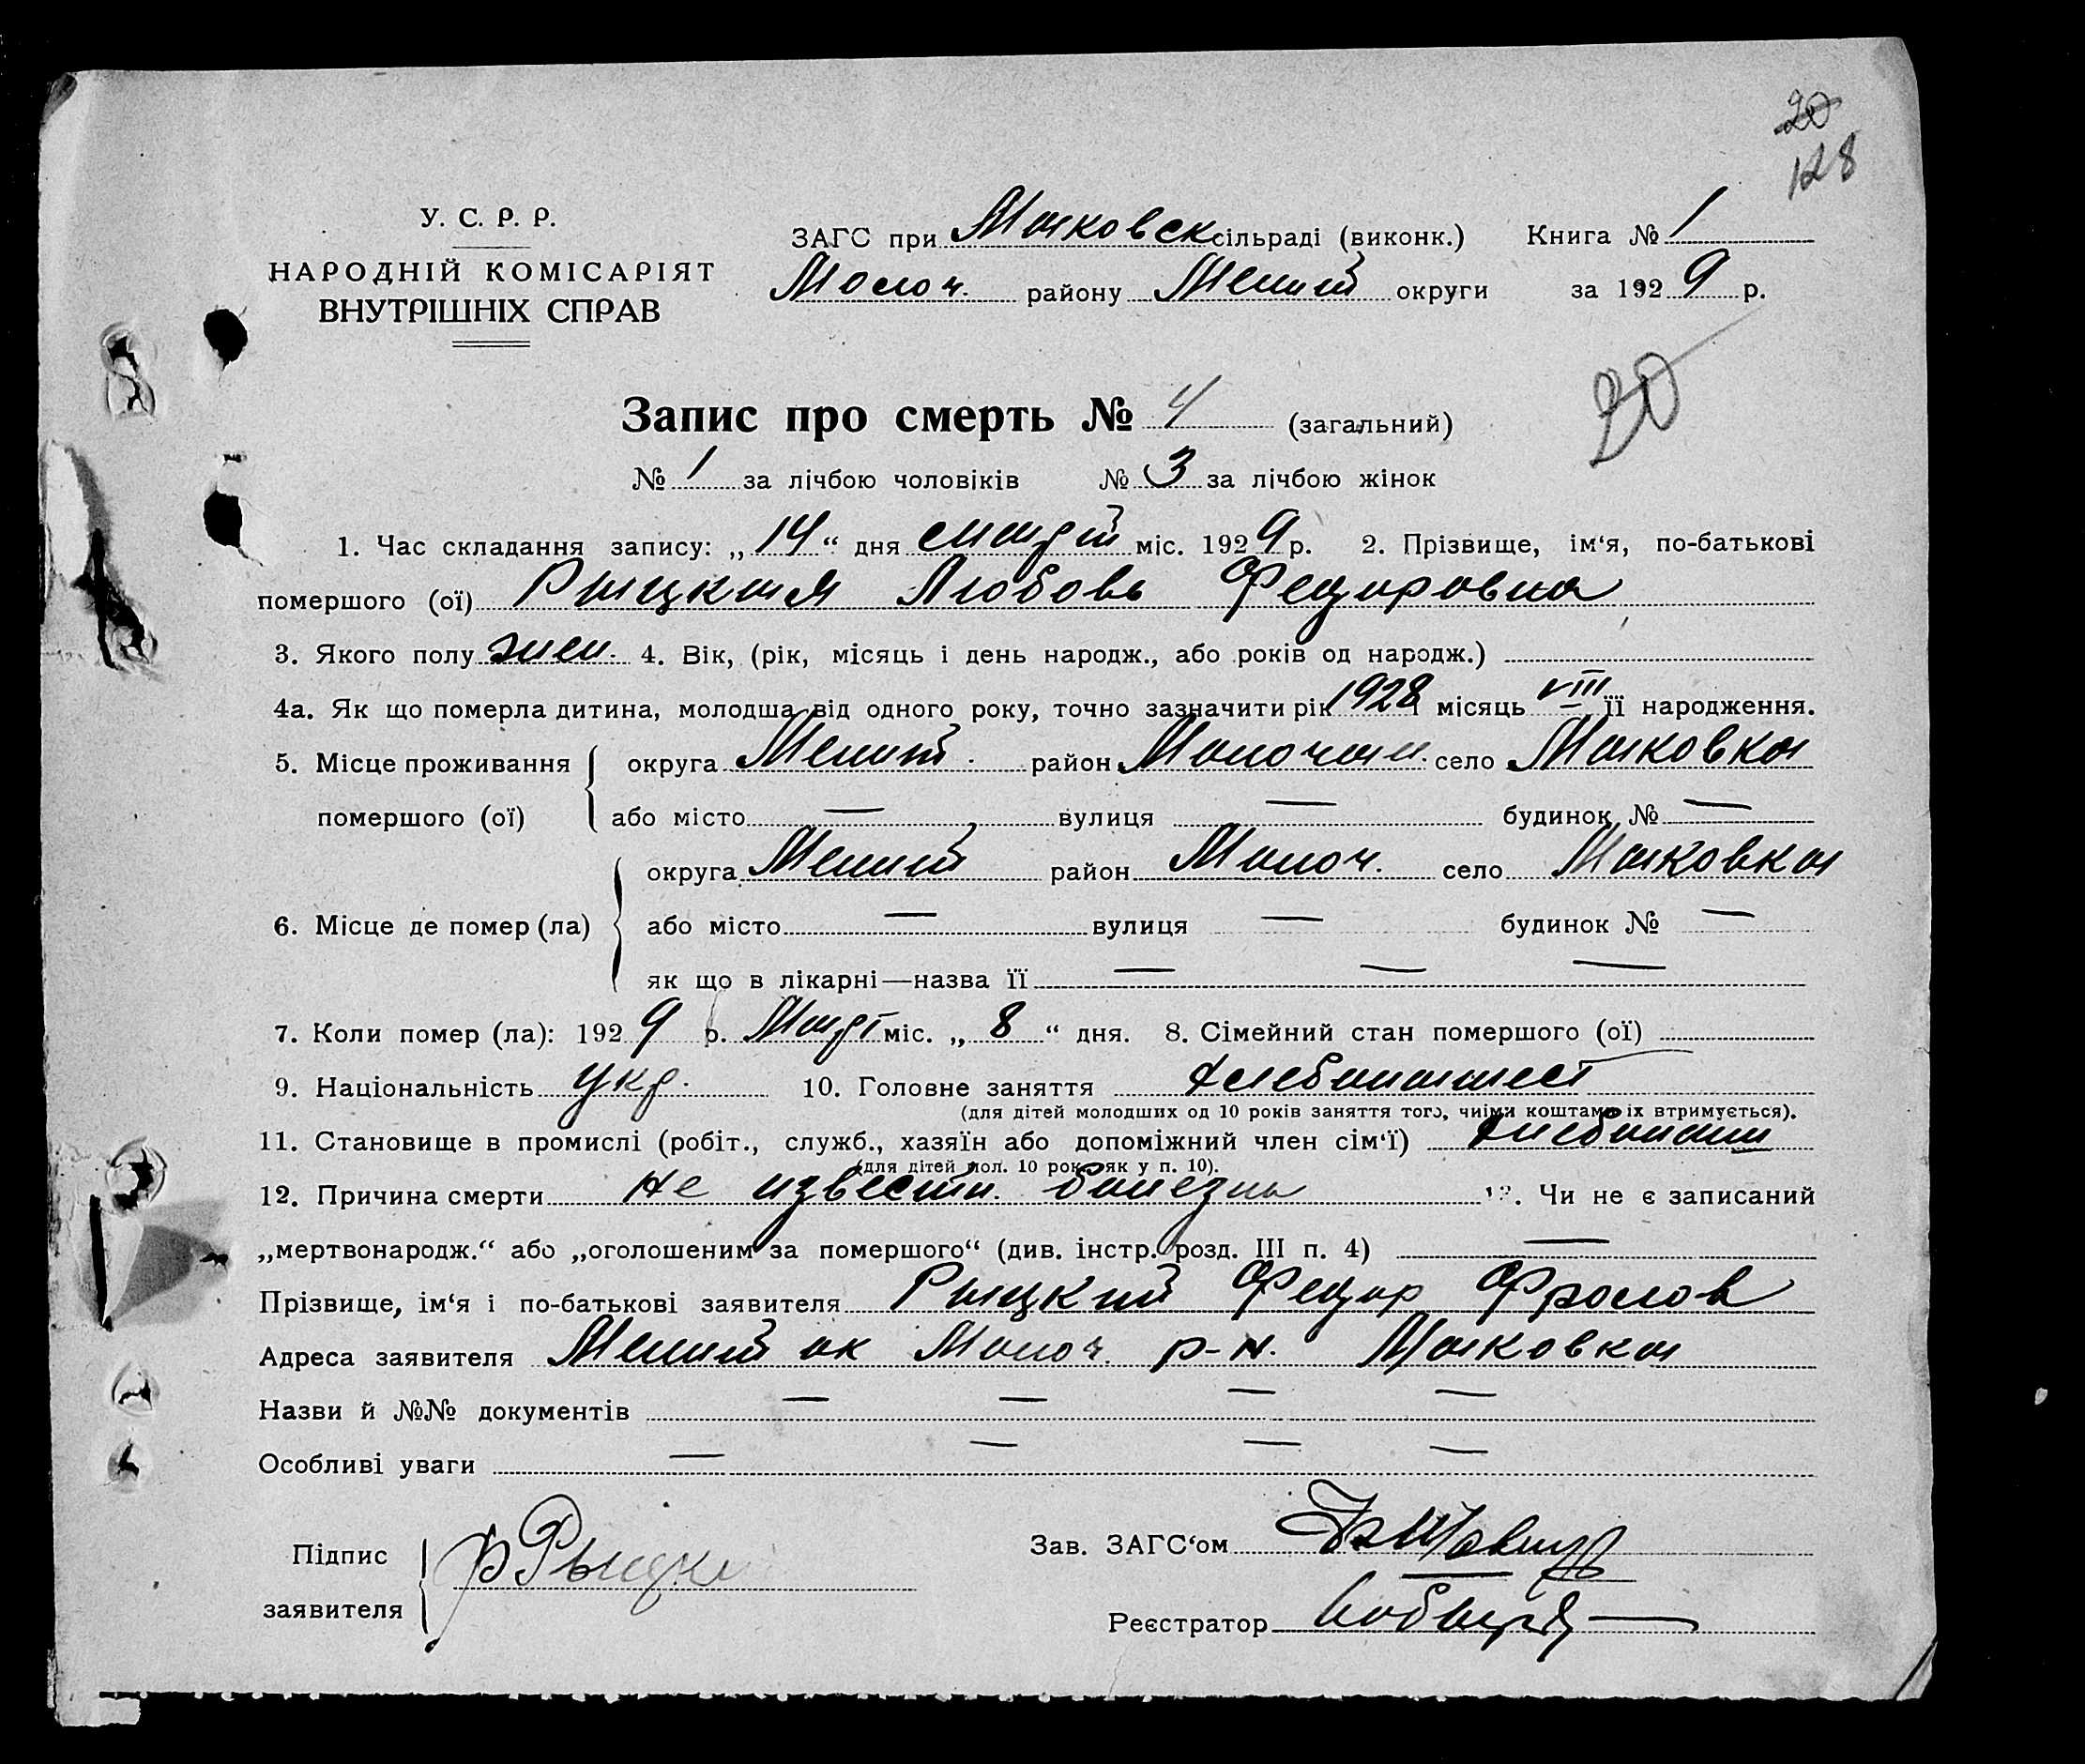 20
128
У. С. Р. Р.
НАРОДНІЙ КОМІСАРІЯТ
ВНУТРІШНІХ СПРАВ
ЗАГС при Маковск сільраді (виконк.) Книга № 1
Молоч. району Мелит округи за 1929 р.
20
Запис про смерть № 4 (загальний)
№ 1 за лічбою чоловіків № 3 за лічбою жінок
1. Час складання запису: „14“ дня март міс. 1929 р. 2. Прізвище, ім‘я, по-батькові
помершого (ої) Рыцкая Любовь Федоровна
3. Якого полу жен. 4. Вік, (рік, місяць і день народж., або років од народж.)
4а. Як що померла дитина, молодша від одного року, точно зазначити рік 1928 місяць VIII її народження.
5. Місце проживання округа Мелит. район Молочан. село Маковка
помершого (ої) або місто — вулиця — будинок № —
округа Мелит район Молоч. село Маковка
6. Місце де помер (ла) або місто — вулиця — будинок № —
як що в лікарні—назва її — — —
7. Коли помер (ла): 1929 р. Март міс. „8“ дня. 8. Сімейний стан помершого (ої)
9. Національність Укр. 10. Головне заняття хлебопашест
(для дітей молодших од 10 років заняття того, чиіми коштами їх втримується).
11. Становище в промислі (робіт., служб., хазяїн або допоміжний член сім‘ї) хлебопаш
(для дітей мол. 10 рок. як у п. 10).
12. Причина смерти Не извести. болезнь 13. Чи не є записаний
„мертвонародж.“ або „оголошеним за помершого“ (див. інстр. розд. III п. 4) —
Прізвище, ім‘я і по-батькові заявителя Рыцкий Федор Фролов
Адреса заявителя Мелит ок Молоч. р-н. Маковка
Назви й №№ документів — — — —
Особливі уваги — — — —
Підпис
заявителя Ф Рыцки
Зав. ЗАГС‘ом
Реєстратор